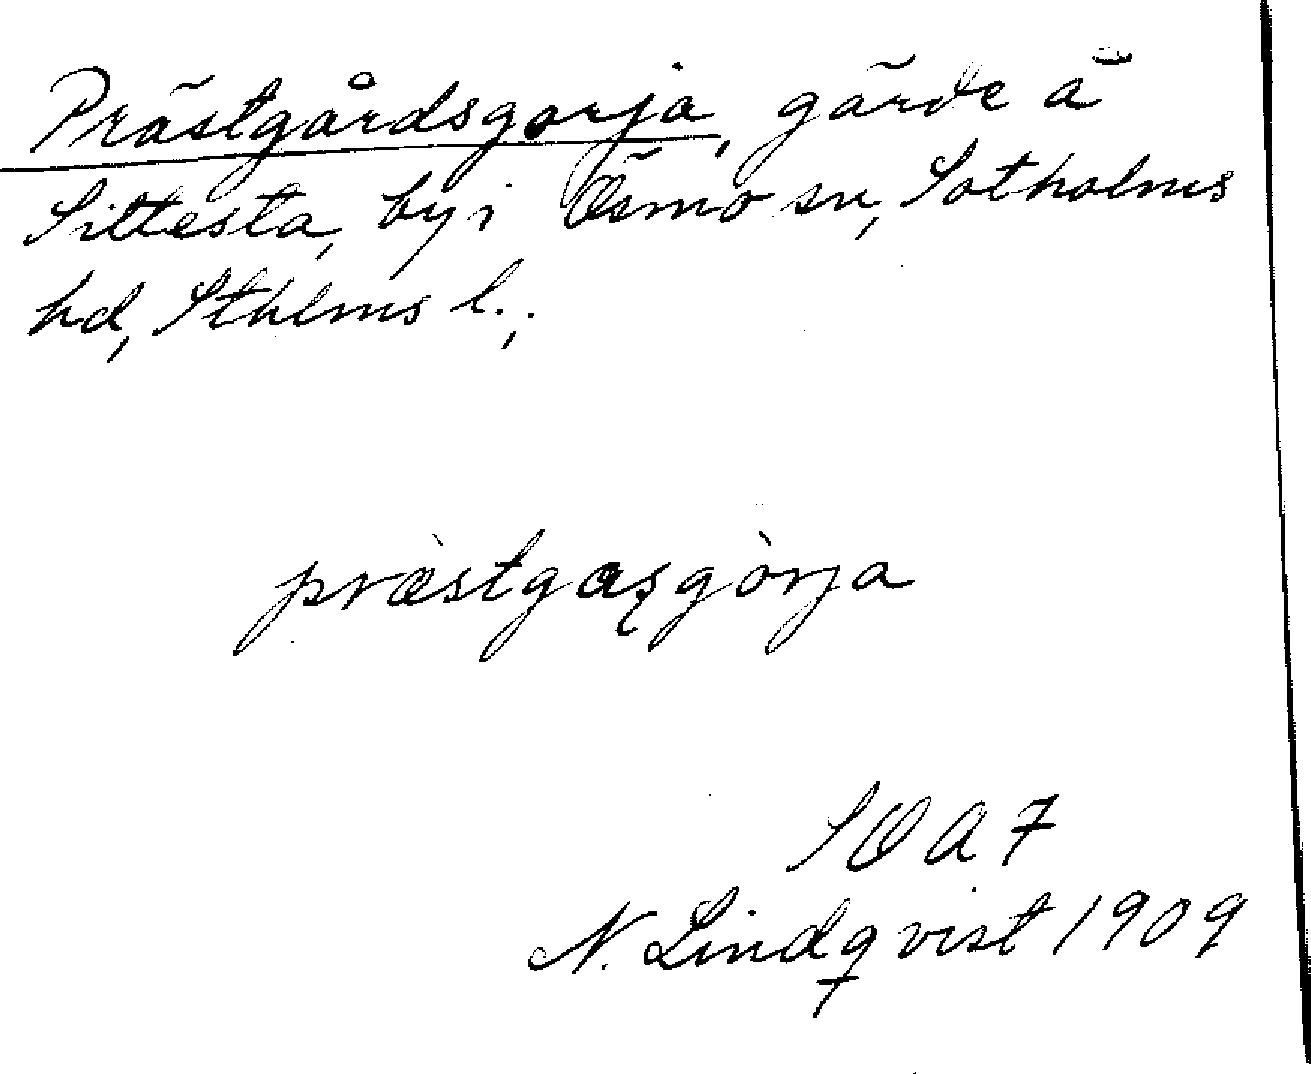 Prästgårdsgorja, gärde å
Sittesta, by i Ösmo sn, Sotholms
hd, Sthlms l.,
præ̀stgaʂgòrja
SOA 7
N. Lindqvist 1909